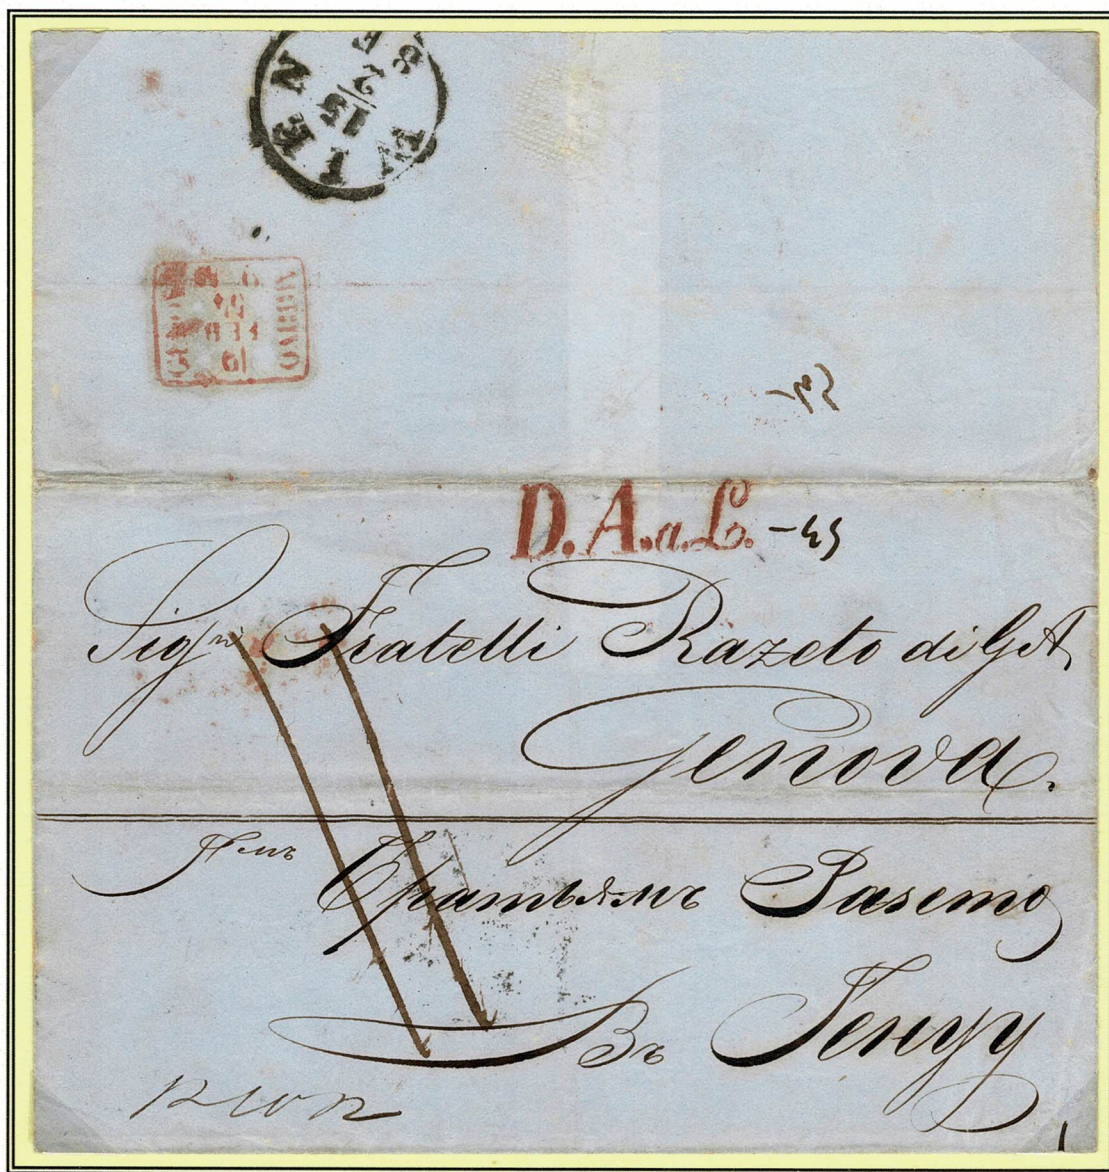 WIEN
15/2
8 F
19
FEB
59
D. A. a. L. -45
Sig.ri Fratelli Razeto di G.A
Genova.
Г-мъ
Братьямъ Разето
Въ Геную